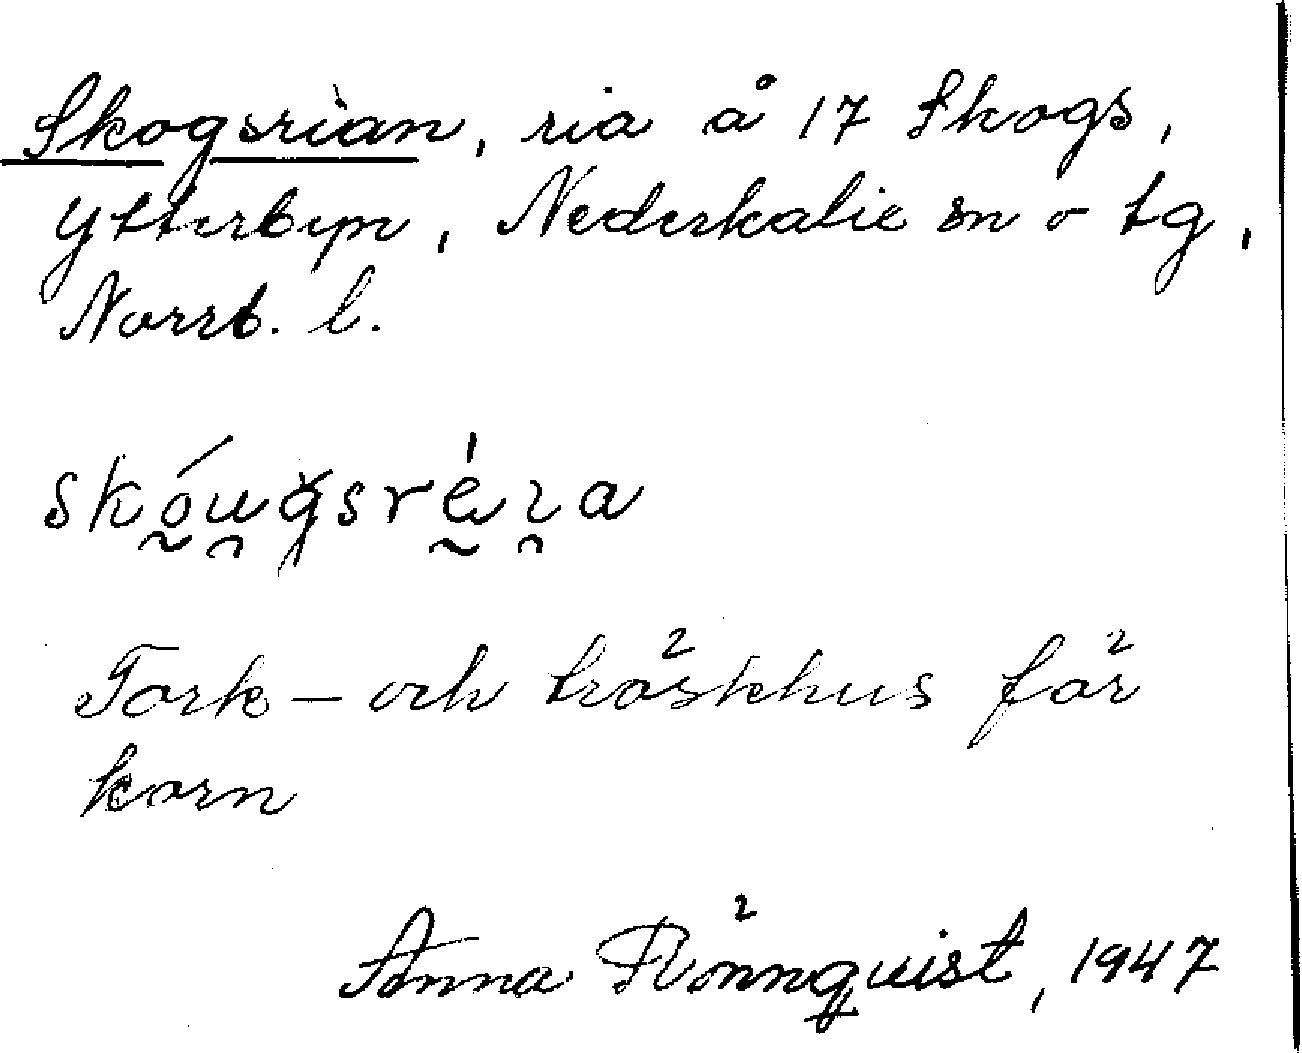 Skogsrian, ria å 17 Skogs,
Ytterbyn, Nederkalix sn o tg,
Norrb. l.
skóu̯gsréɩ̯a
Tork- och tröskhus för
korn
Anna Rönnquist, 1947